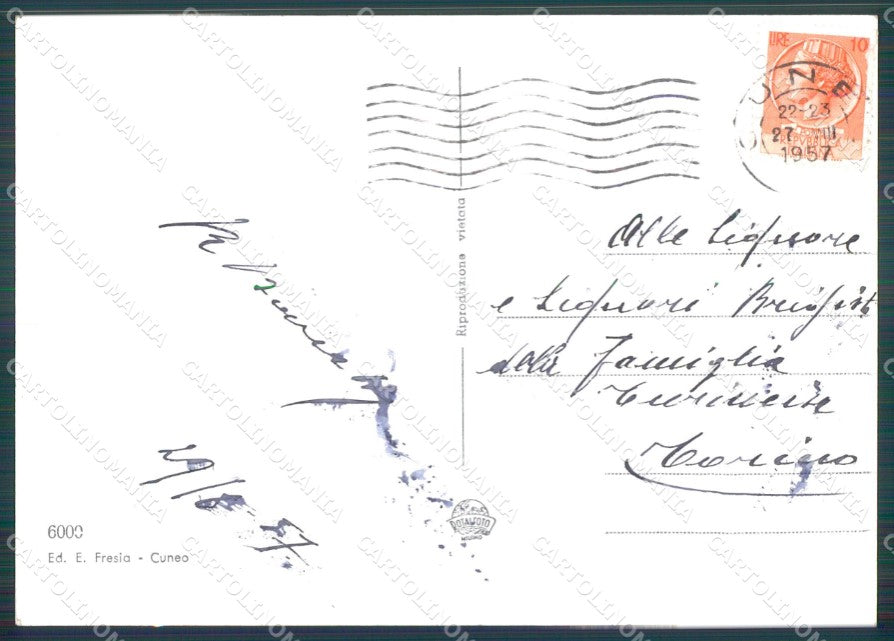 LIRE 10
CUNEO
22-23
27 III
1957
Riproduzione vietata
Alle Signore
e Signori Brigist
della Famiglia
Turinese
Torino
57
6000
Ed. E. Fresia - Cuneo
ROTALFOTO
MILANO
CARTOLINOMANIA